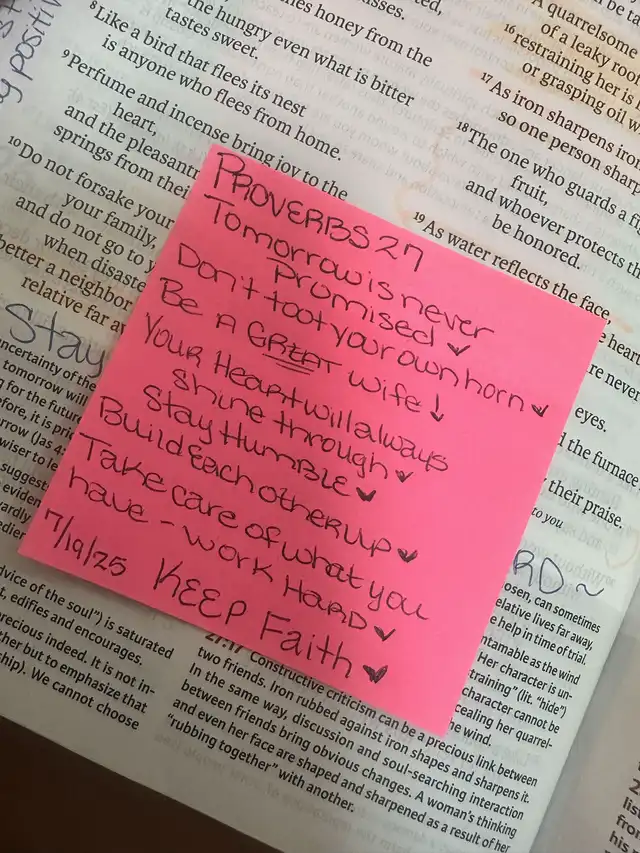 8 Like a bird that flees its nest
is anyone who flees from home.
9 Perfume and incense bring joy to the
heart,
and the pleasant
springs from thei
10 Do not forsake your
your family,
and do not go to y
when disaste
better a neighbor
relative far aw
Stay
the hungry even what is bitter
tastes sweet.
honey from the
PROVERBS 27
Tomorrow is never
Promised
Don't toot your own horn
Be A GREAT wife!
Your Heart will always
Shine through
Stay Humble
Build Each other up
Take care of what you
have - work Hard
7/19/25 KEEP Faith
A quarrelsome
of a leaky roo
16 restraining her is
or grasping oil w
17 As iron sharpens iron
so one person shar
18 The one who guards a fi
fruit,
and whoever protects th
be honored.
19 As water reflects the face,
heart
re never
eyes.
the furnace
their praise.
to you
RD~
ncertainty of the
tomorrow will
for the future
row (Jas 4:
wiser to le
suggest
eviden
dvice of the soul") is saturated
t, edifies and encourages.
recious indeed. It is not in-
ther but to emphasize that
ship). We cannot choose
osen, can sometimes
elative lives far away,
e help in time of trial.
ntamable as the wind
Her character is un-
training" (lit. "hide")
character cannot be
cealing her quarrel-
he wind.
27:17 Constructive criticism can be a precious link between
two friends. Iron rubbed against iron shapes and sharpens it.
In the same way, discussion and soul-searching interaction
between friends bring obvious changes. A woman's thinking
and even her face are shaped and sharpened as a result of her
"rubbing together" with another.